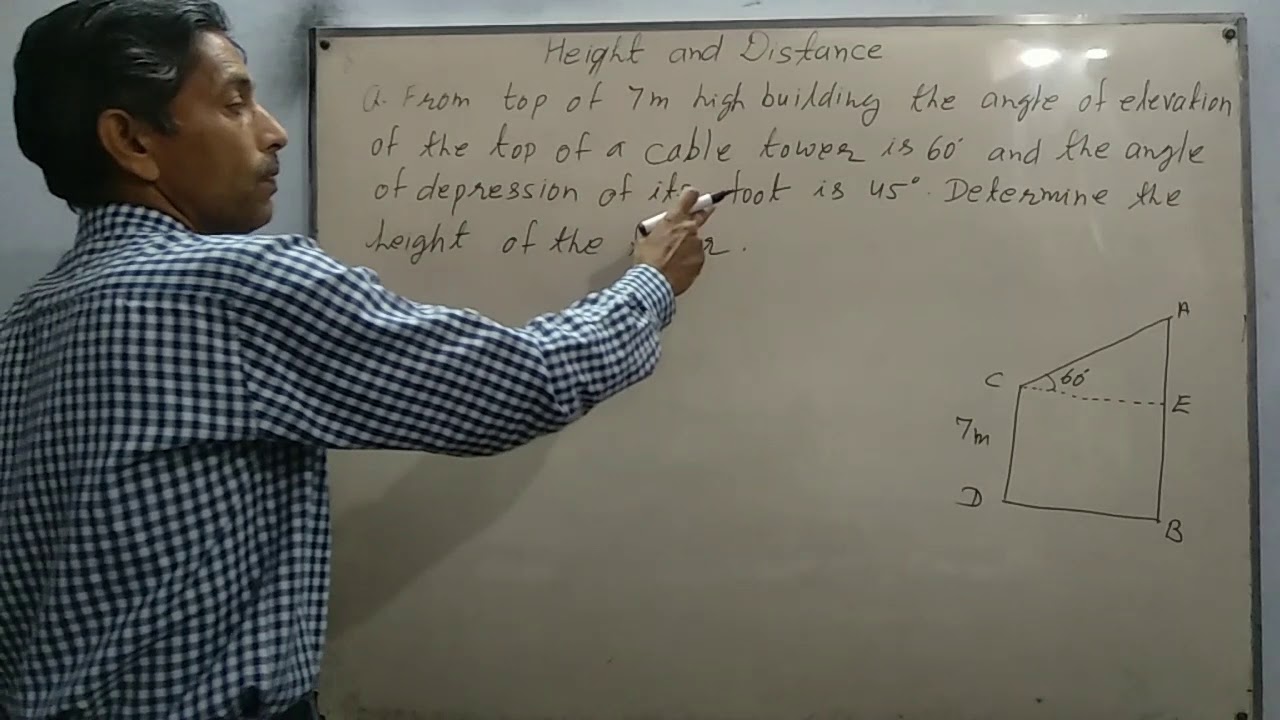 Height and Distance
Q. From top of 7m high building the angle of elevation
of the top of a cable tower is 60° and the angle
of depression of its foot is 45°. Determine the
height of the .
A
C 60°
E
7m
D
B